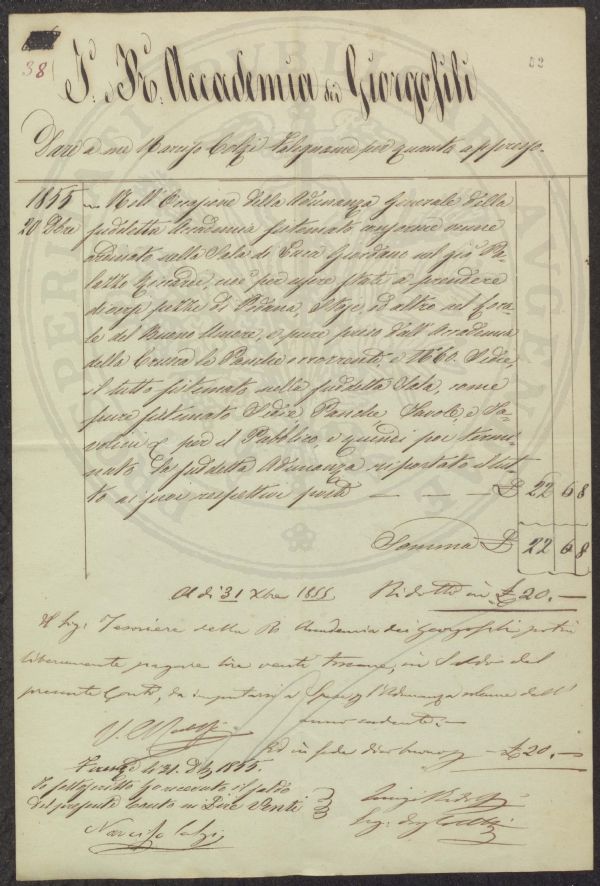 38
52
I. R. Accademia dei Giorgofili
Dare a me Narciso Colzi Falegname per quanto appresso.
1855 Nell'Occasione della Adunanza Generale della
20 Dbre suddetta Accademia
nella Sala di Luca Giordano nel già Pa-
lazzo Riccardi, per essere stato a prendere
diversi pezzi di Pedana, Stoje, ed altro nel Loca-
le del Buono Umore, e pure preso dall'Accademia
della Crusca le Panche occorrenti, e N° 60. Sedie,
il tutto sistemato nella suddetta Sala, come
pure sistemato Sedie Panche, Tavole, e Ta-
volini per il Pubblico e quindi poi termi-
nata la suddetta Adunanza riportato il tut-
to ai suoi respettivi posti — — — £ 22 6 8
Somma £ 22 6 8
A dì 31 Xbre 1855 Ridotto in £ 20. —
Il Sig: Tesoriere della R. Accademia dei Georgofili potrà
liberamente pagare lire venti toscane, in Saldo del
presente Conto, da imputarsi a Spese Adunanza solenne dell'
anno cadente. —
Ed in fede dico buono per — £ 20. —
1855
Io sottoscritto ho ricevuto il saldo
del presente conto in Lire Venti
Luigi Ridolfi
Narciso Colzi